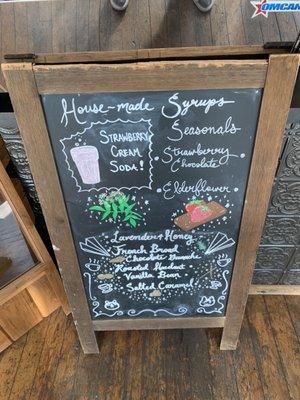 TOMCAN
House-made Syrups
Strawberry
Cream
Soda!
Seasonals
Strawberry
Chocolate
Elderflower
Lavender + Honey
French Broad
Chocolate Ganache
Roasted Hazelnut
Vanilla Bean
Salted Caramel